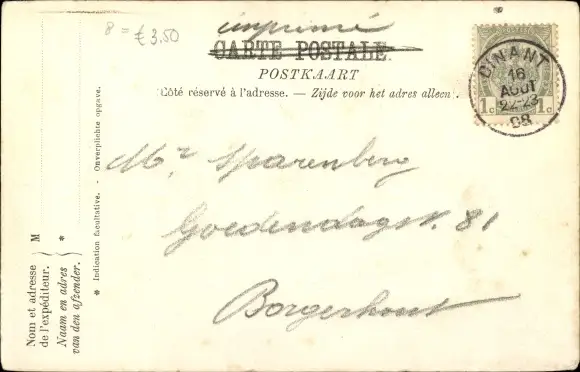 8 = £ 3.50
imprimé
CARTE POSTALE.
POSTKAART
Côté réservé à l'adresse. — Zijde voor het adres alleen.
DINANT
16
AOUT
22-23
08
1c 1c
Mr Sparenberg
Goedendagstr. 81
Borgerhout
Nom et adresse
de l'expéditeur. M
Naam en adres
van den afzender. *
* Indication facultative. - Onverplichte opgave.